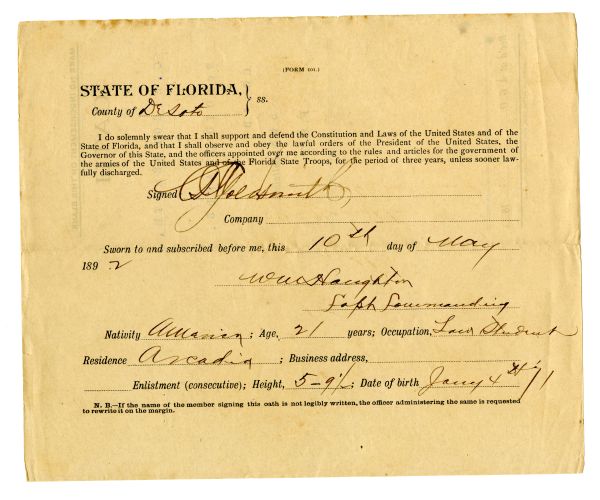 (FORM 101.)
STATE OF FLORIDA, } ss.
County of De Soto
I do solemnly swear that I shall support and defend the Constitution and Laws of the United States and of the
State of Florida, and that I shall observe and obey the lawful orders of the President of the United States, the
Governor of this State, and the officers appointed over me according to the rules and articles for the government of
the armies of the United States and of the Florida State Troops, for the period of three years, unless sooner law-
fully discharged.
Signed Goldsmith
Company
Sworn to and subscribed before me, this 10th day of May
1892
Wm Haughton
Capt Commanding
Nativity ; Age, 21 years; Occupation, Law Student
Residence Arcadia ; Business address,
Enlistment (consecutive); Height, 5-9½; Date of birth Jany 4th /71
N. B.—If the name of the member signing this oath is not legibly written, the officer administering the same is requested
to rewrite it on the margin.